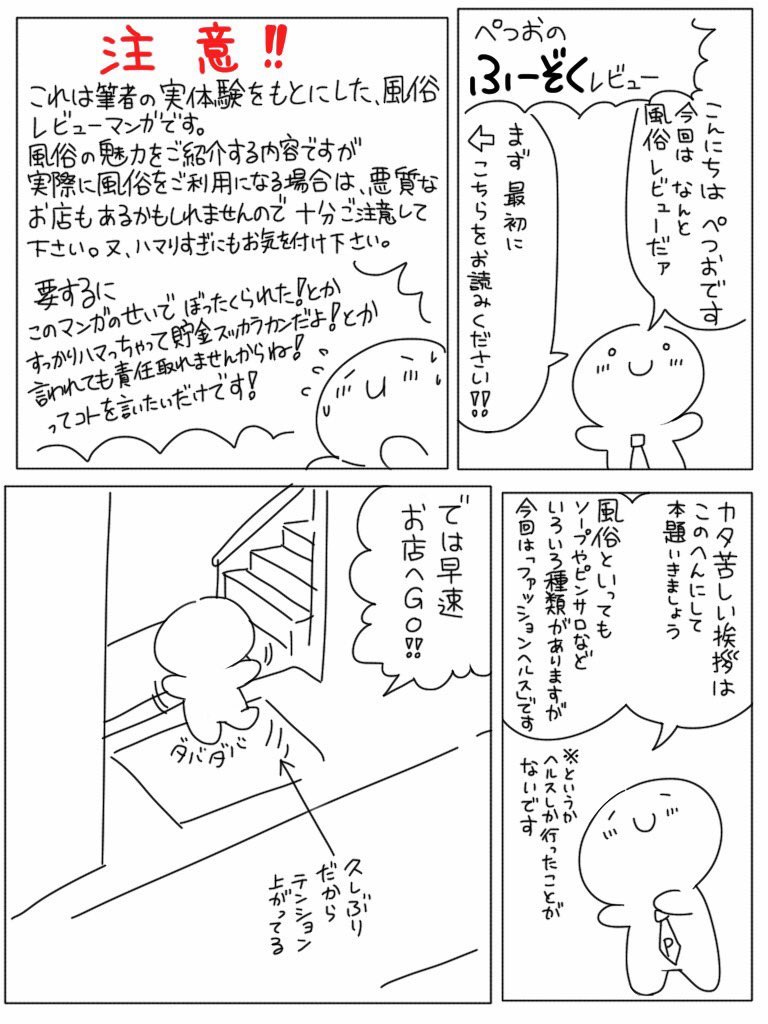 ぺつおの
ふーぞくレビュー
こんにちは ぺつおです
今回は なんと
風俗レビューだァ
まず 最初に
⇦こちらをお読みください!!
注 意!!
これは筆者の実体験をもとにした、風俗
レビューマンガです。
風俗の魅力をご紹介する内容ですが
実際に風俗をご利用になる場合は、悪質な
お店もあるかもしれませんので 十分ご注意して
下さい。又、ハマりすぎにもお気を付け下さい。
要するに
このマンガのせいで ぼったくられた!とか
すっかりハマっちゃって貯金スッカラカンだよ!とか
言われても責任取れませんからね!
ってコトを言いたいだけです!
カタ苦しい挨拶は
このへんにして
本題いきましょう
風俗といっても
ソープやピンサロなど
いろいろ種類がありますが
今回は「ファッションヘルス」です
※というか
ヘルスしか行ったことが
ないです
P
では早速
お店へGO!!
ダバダバ
久しぶり
だから
テンション
上がってる